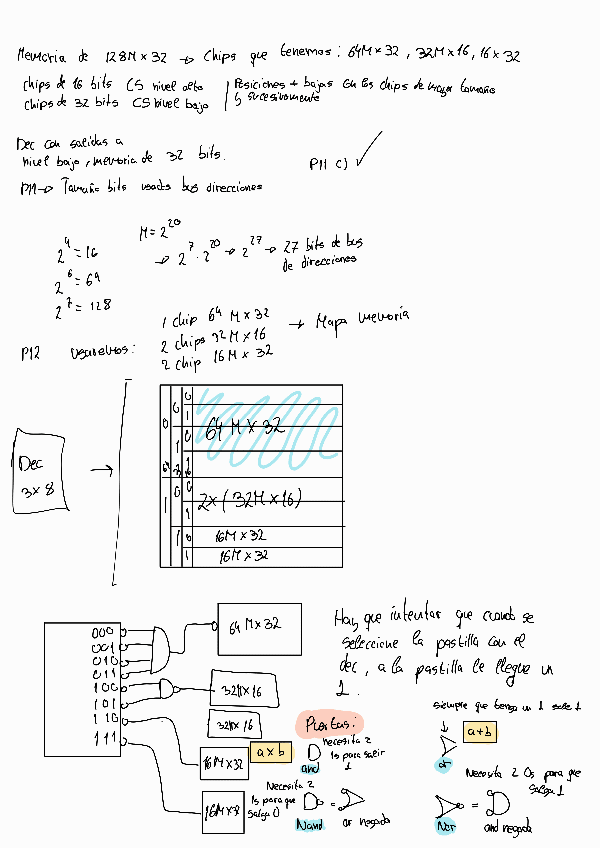 Memoria de 128M x 32 → Chips que tenemos: 64M x 32, 32M x 16, 16 x 32
chips de 16 bits CS nivel alto
chips de 32 bits CS nivel bajo
Posiciones + bajas en los chips de mayor tamaño
↳ sucesivamente
Dec con salidas a
nivel bajo, memoria de 32 bits.
P11 c) ✓
P11 → Tamaño bits usados bus direcciones
2^4 = 16
2^6 = 64
2^7 = 128
M = 2^20
→ 2^7 · 2^20 → 2^27 → 27 bits de bus
de direcciones
P12 usaremos:
1 chip 64 M x 32
2 chips 32M x 16
2 chip 16M x 32
→ Mapa memoria
Dec
3x8
→
0 0 0
1
1 0
64 32 16 1
1 0 0
1
1 0
1
64 M x 32
2x (32M x 16)
16M x 32
16M x 32
000
001
010
011
100
101
110
111
64 M x 32
32M x 16
32M x 16
16M x 32
16M x 32
Hay que intentar que cuando se
seleccione la pastilla con el
dec, a la pastilla le llegue un
1.
Puertas:
a x b
necesita 2
1s para salir
1
and
Necesita 2
1s para que
salga 0
=
Nand
or negada
siempre que tenga un 1 sale 1
a+b
or
Necesita 2 0s para que
salga 1
=
Nor
and negada